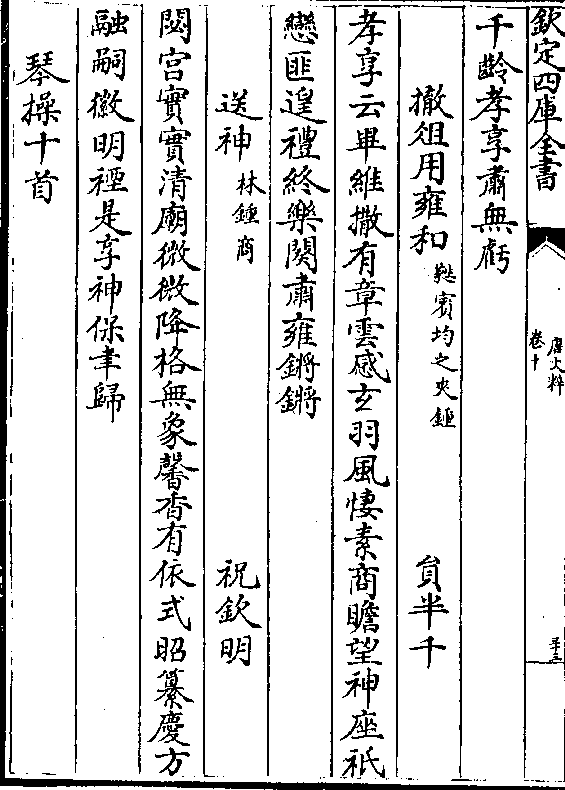 欽定四庫全書
唐文粹
卷十
千齡孝享肅無虧
撤俎用雍和 蕤賓均之夾鍾 員半千
孝享云畢維撤有章雲感玄羽風悽素商瞻望神座祇
戀匪遑禮終樂闋肅雍鏘鏘
送神 林鍾商 祝欽明
閟宮實實清廟微微降格無象馨香有依式昭纂慶方
融嗣徽明禋是享神保聿歸
琴操十首